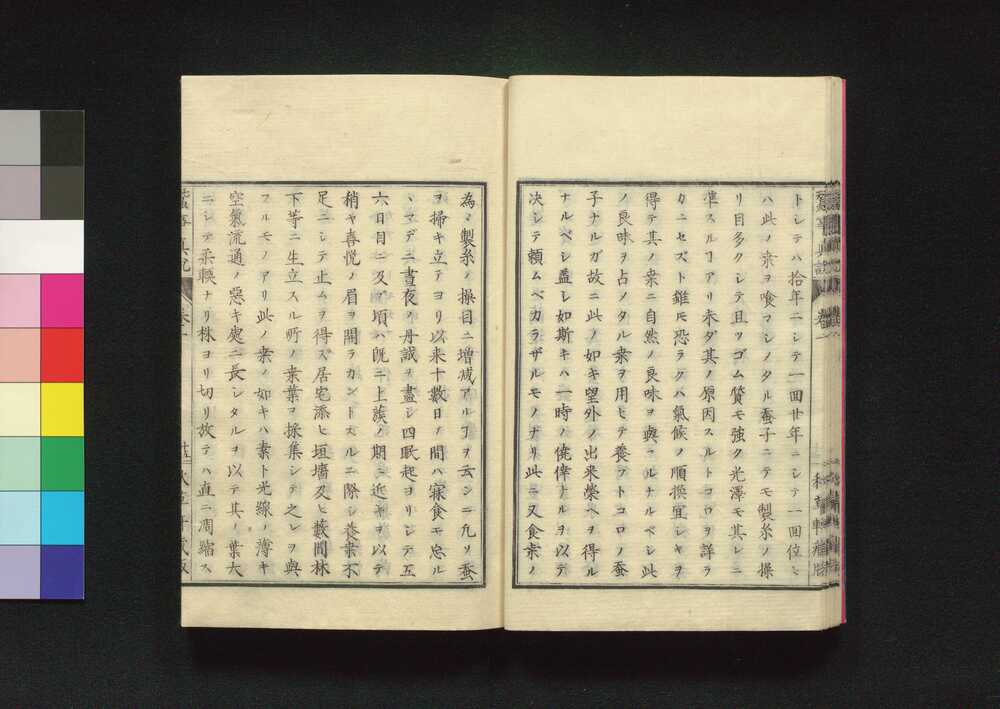 トシテハ拾年ニシテ一回廿年ニシテ一回位ニ
ハ此ノ桒ヲ喰マシノタル蚕子ニテモ製糸ノ操
リ目多クシテ且ツゴム質モ強ク光澤モ其レニ
準スルヿアリ未ダ其ノ原因スルトコロヲ詳ラ
カニセズト雖モ恐ラクハ氣候ノ順擽宜シキヲ
得テ其ノ桒ニ自然ノ良味ヲ與ヘルナルベシ此
ノ良味ヲ占メタル桒ヲ用ヒテ養フトコロノ蚕
子ナルガ故ニ此ノ如キ望外ノ出来榮ヘヲ得ル
ナルベシ盖シ如斯キハ一時ノ僥倖ナルヲ以テ
决シテ頼ムベカラザルモノナリ此ニ又食桒ノ
為ニ製糸ノ操目ニ増减アルヿヲ云ンニ凡ソ蚕
ヲ掃キ立テヨリ以来十數日ノ間ハ寐食モ忘ル
ヽマデニ晝夜ノ丹誠ヲ盡シ四眠起ヨリシテ五
六日目ニ及ブ頃ハ既ニ上蔟ノ期ニ近キヲ以テ
稍ヤ喜悦ノ眉ヲ開ラカントスルニ際シ養桒不
足ニシテ止ムヲ得ズ居宅添ヒ垣墻及ヒ藪間林
下等ニ生立スル所ノ桒葉ヲ採集シテ之レヲ與
フルモノアリ此ノ桒ノ如キハ素ト光線ノ薄キ
空氣流通ノ惡キ處ニ長シタルヲ以テ其ノ葉大
ニシテ柔軟ナリ株ヨリ切リ放テハ直ニ凋縮ス